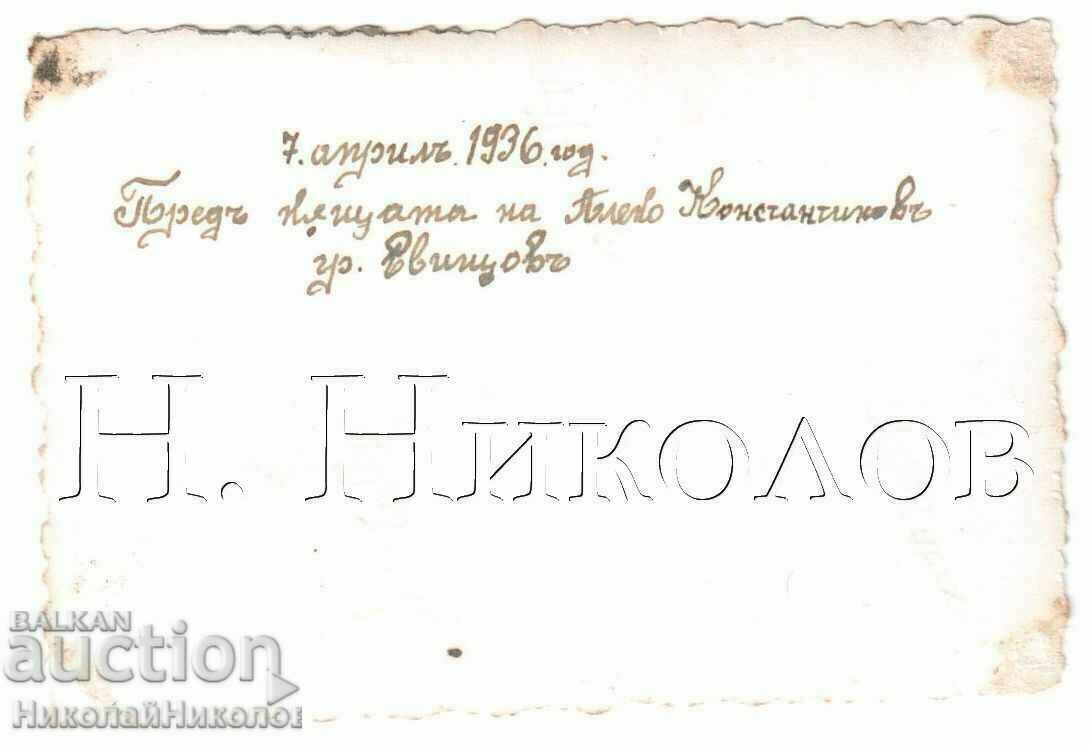 7. априлъ 1936 год.
Предъ къщата на Алеко Константиновъ
гр. Свищовъ
Н. Николов
BALKAN
auction
НиколайНиколов